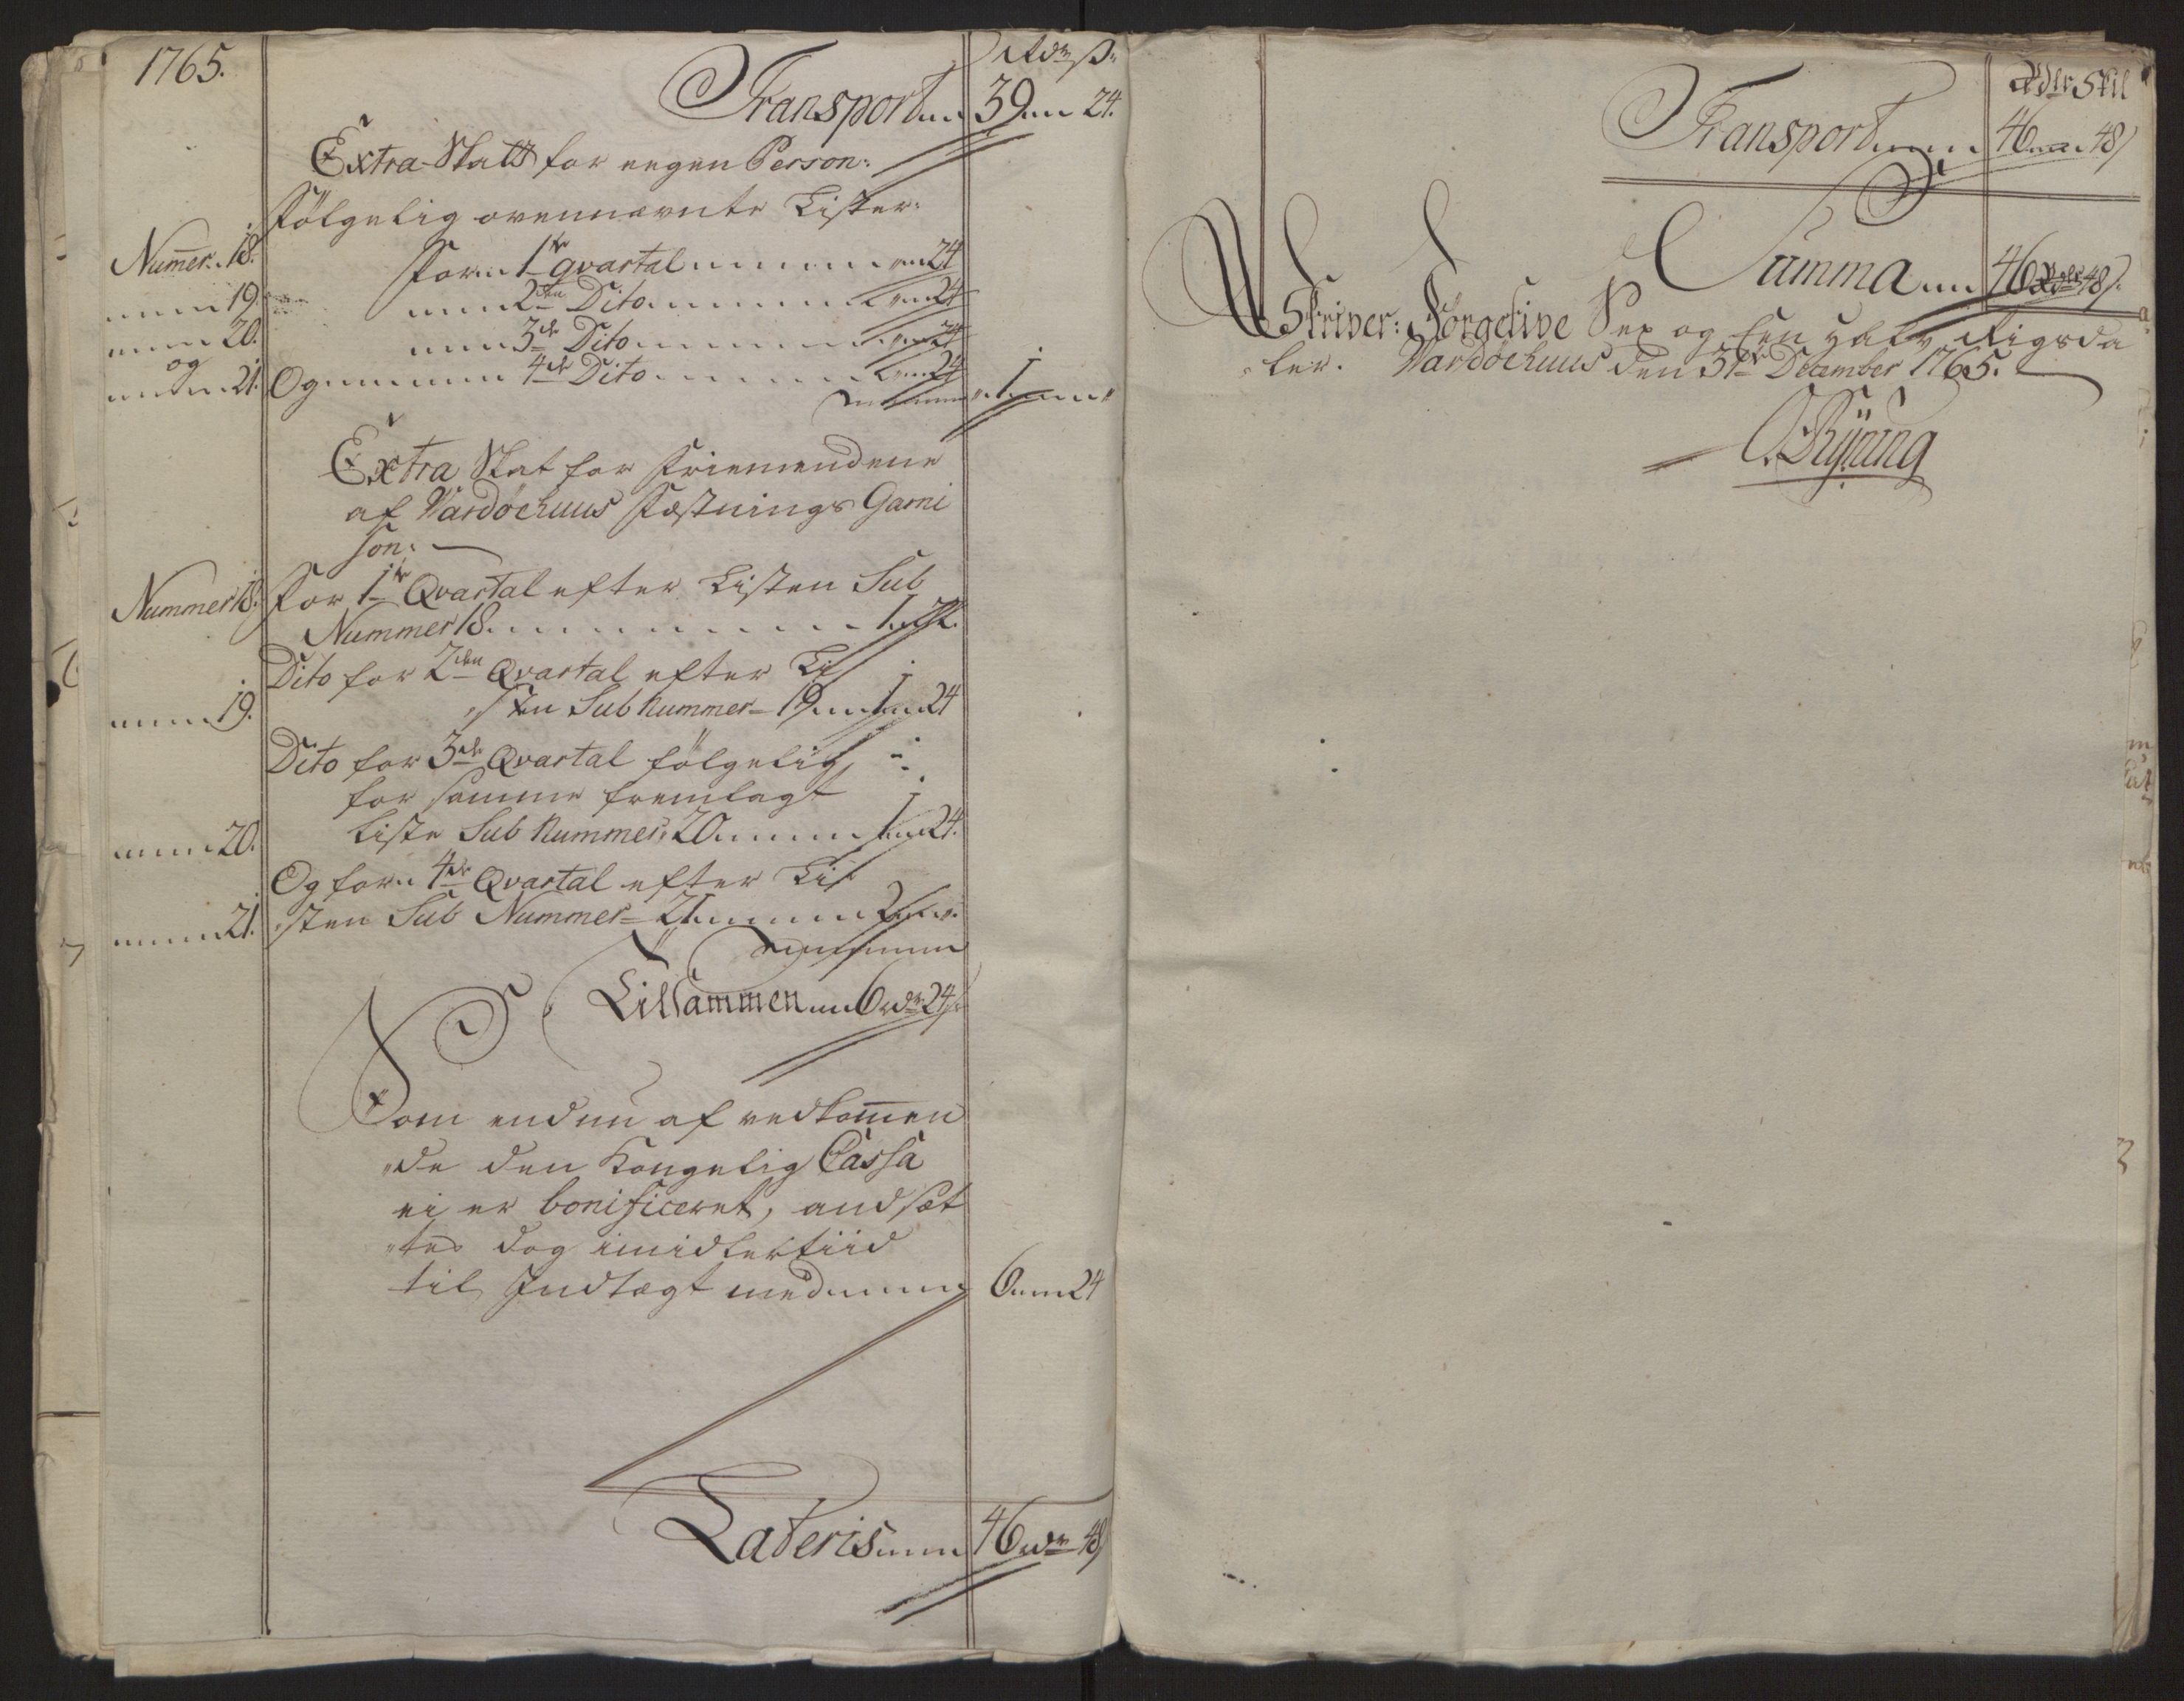 1765.
Rdr ß
Transport 39 24.
Extra Skatt for eegen Person:
Følgelig ovennævnte Lister:
Numer. 18. For 1te qvartal 24
19. 2den Dito 24
20. 3de Dito 24
og
21. Og 4de Dito 24
1
Extra Skat for Friemendene
af Wardøehuus Fæstnings Garni
son:
Nummer 18. For 1te Qvartal efter Listen Sub
Nummer 18. 1. 72.
Dito for 2den Qvartal efter Li
19. sten Sub Nummer 19 1 24
Dito for 3de Qvartal følgelig
for samme fremlagt
20. Liste Sub Nummer 20 1 24.
Og for 4de Qvartal efter Li
21. sten Sub Nummer 21 2
Tilsammen 6 rdr 24 ß
Som endnu af vedkomen
de den Kongelig Cassa
ei er bonificeret, andsæt
tes dog imidlertiid
til Indtægt med 6 24
Lateris 46 rdr 48 ß
Rdlr Skil
Transport 46 48
Summa 46 Rdlr 48 ß.
Skriver: Førgetive Sex og en halv Rigsda
ler. Wardøehuus den 31te December 1765.